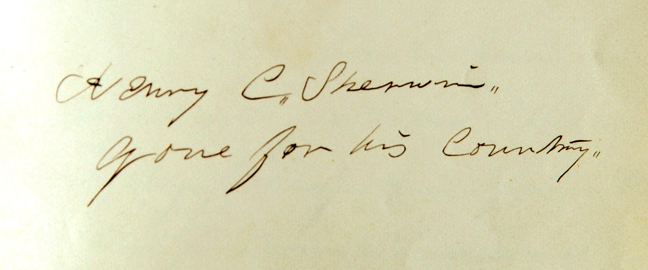 Henry C,, Sherwin,,
gone for his Country,,